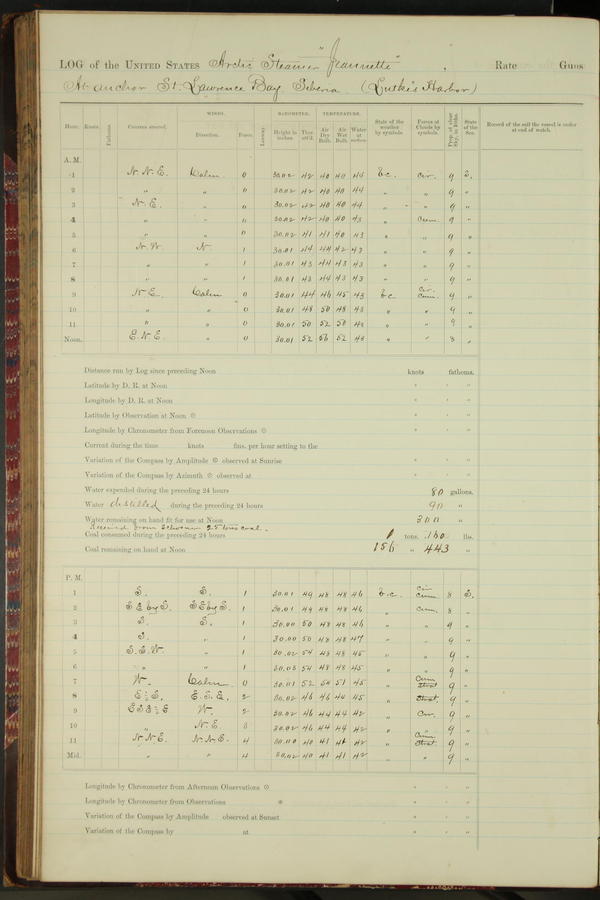 LOG of the UNITED STATES Arctic Steamer "Jeannette", Rate Guns
At anchor St. Lawrence Bay Siberia. (Lutke's Harbor)
WINDS. BAROMETER. TEMPERATURE.
Hour. Knots. Fathoms. Courses steered. Direction. Force. Leeway. Height in inches. Ther. att'd. Air Dry Bulb. Air Wet Bulb. Water at surface. State of the weather by symbols. Forms of Clouds by symbols. State of the Sea. Record of the sail the vessel is under at end of watch.
A. M.
1 N. N. E. Calm 0 30.02 42 40 40 44 b.c. Cir. 9 S.
2 " " 0 30.02 42 40 40 44 " " 9 "
3 N. E. " 0 30.02 42 40 40 44 " " 9 "
4 " " 0 30.02 42 40 40 43 " Cum. 9 "
5 " " 0 30.02 41 41 40 43 " " 9 "
6 N. W. N. 1 30.01 44 44 42 43 " " 9 "
7 " " 1 30.01 43 44 43 43 " " 9 "
8 " " 1 30.01 43 44 43 43 " " 9 "
9 N. E. Calm 0 30.01 44 46 45 43 b.c. Cir. Cum. 9 "
10 " " 0 30.01 48 50 48 43 " " 9 "
11 " " 0 30.01 50 52 50 43 " " 9 "
Noon. E. N. E. " 0 30.01 52 56 52 43 " " 8 "
Distance run by Log since preceding Noon knots fathoms.
Latitude by D. R. at Noon ° ' "
Longitude by D. R. at Noon ° ' "
Latitude by Observation at Noon ☉ ° ' "
Longitude by Chronometer from Forenoon Observations ☉ ° ' "
Current during the time knots fms. per hour setting to the
Variation of the Compass by Amplitude ☉ observed at Sunrise ° ' "
Variation of the Compass by Azimuth ☉ observed at ° ' "
Water expended during the preceding 24 hours 80 gallons.
Water distilled during the preceding 24 hours 90 "
Water remaining on hand fit for use at Noon 300 "
Received from Schooner 25 tons coal.
Coal consumed during the preceding 24 hours 1 tons. 160 lbs.
Coal remaining on hand at Noon 156 " 443 "
P. M.
1 S. S. 1 30.01 49 48 48 46 b.c. Cir. Cum. 8 S.
2 S E by S. S E by S. 1 30.01 49 48 48 46 " Cum. 8 "
3 S. S. 1 30.00 50 48 48 46 " " 9 "
4 S. " 1 30.00 50 48 48 47 " " 9 "
5 S. S. W. " 1 30.02 54 48 48 45 " " 9 "
6 " " 1 30.03 54 48 48 45 " " 9 "
7 W. Calm 0 30.01 52 54 51 45 " Cum. Strat. 9 "
8 E. S. E. 2 30.02 46 46 44 45 " Strat. 9 "
9 W. 2 30.02 46 44 44 42 " Cir. 9 "
10 " N. E. 3 30.02 46 44 44 42 " " 9 "
11 N. N. E. N. N. E. 4 40 41 41 42 " Cum. Strat. 9 "
Mid. " " 4 30.02 40 41 41 42 " " 9 "
Longitude by Chronometer from Afternoon Observations ☉ ° ' "
Longitude by Chronometer from Observations * ° ' "
Variation of the Compass by Amplitude observed at Sunset ° ' "
Variation of the Compass by at ° ' "